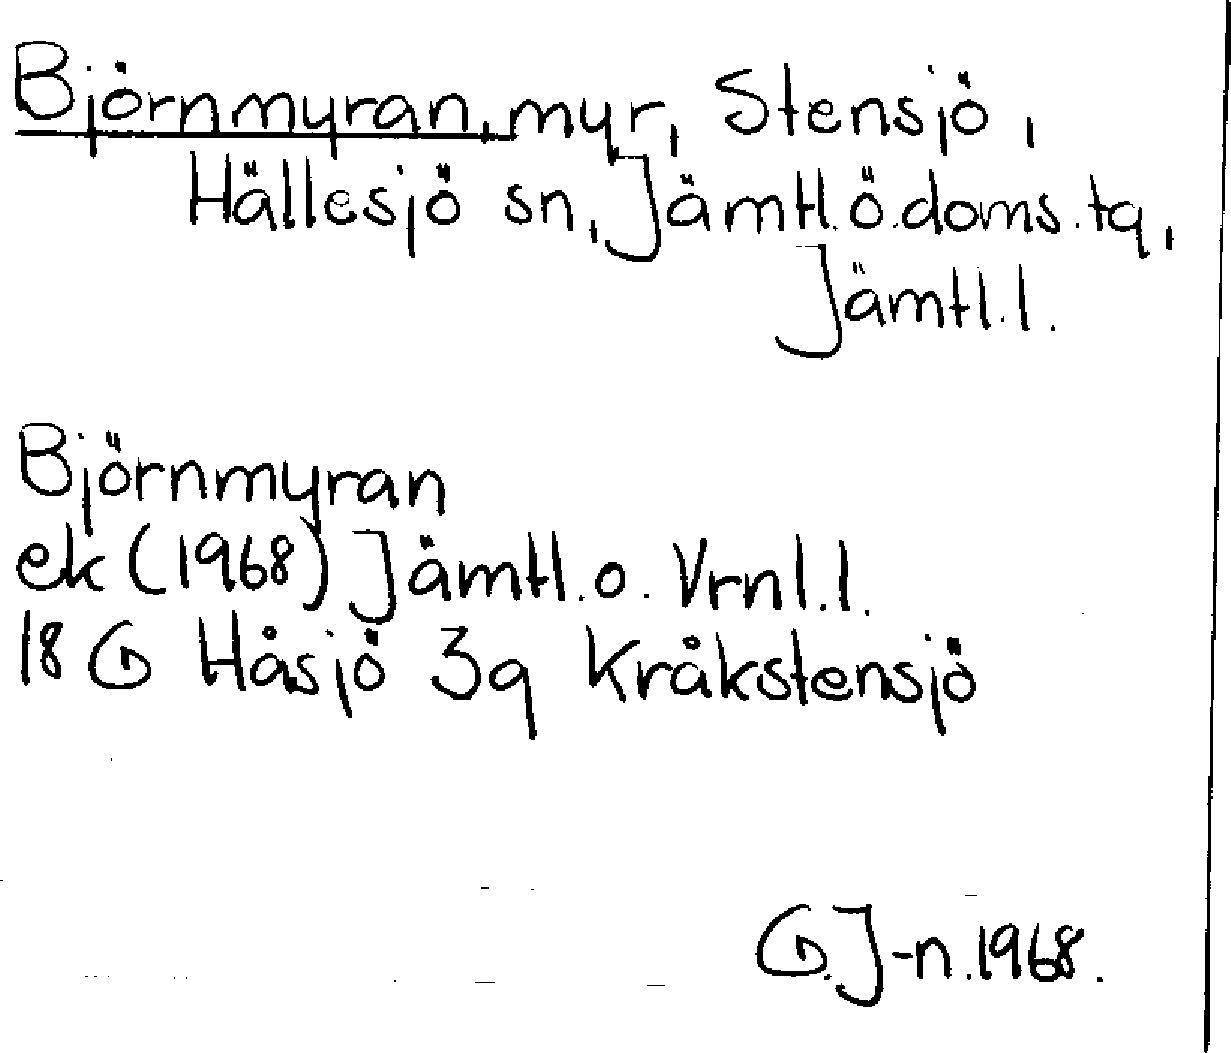 Björnmyran, myr, Stensjö,
Hällesjö sn, Jämtl.ö.doms.tg,
Jämtl.l.
Björnmyran
ek (1968) Jämtl.o. Vrnl.l.
18 G Håsjö 3g Kråkstensjö
G.J-n.1968.